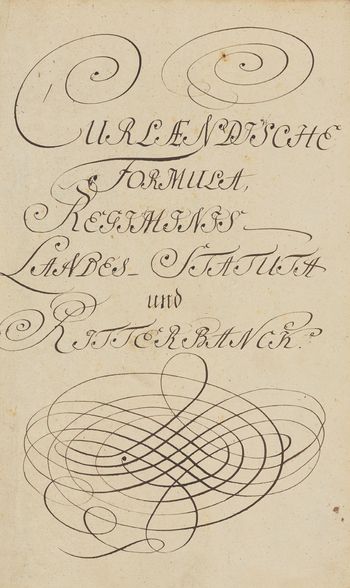 CURLÆNDISCHE
FORMULA,
REGIMINIS
LANDES- STATUTA
und
RITTERBANCK.